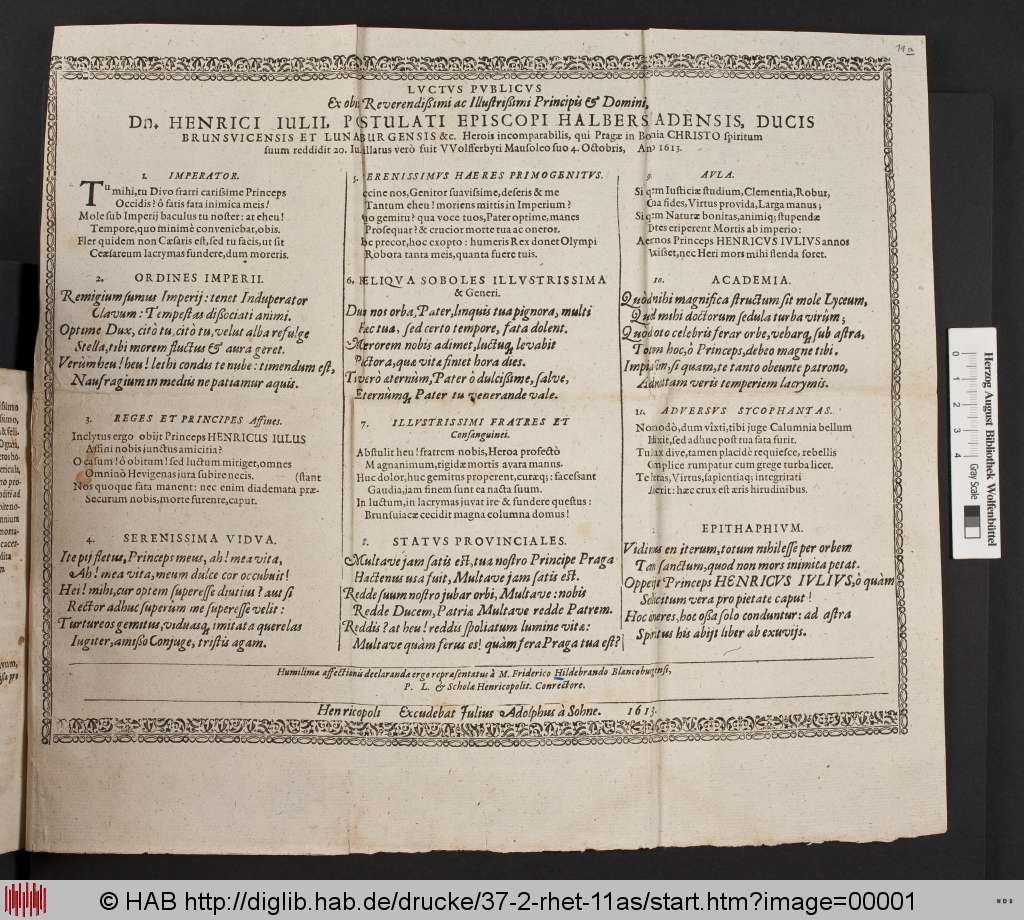 11a
LVCTVS PVBLICVS
Ex obi Reverendißimi ac Illustrißimi Principis & Domini,
Dn. HENRICI IULII, POSTULATI EPISCOPI HALBERSADENSIS, DUCIS
BRUNSVICENSIS ET LUNABURGENSIS &c. Herois incomparabilis, qui Pragæ in CHRISTO spiritum
suum reddidit 20. illatus verò fuit VVolfferbyti Mausoleo suo 4. Octobris, 1613.
1. IMPERATOR.
Tu mihi, tu Divo fratri carissime Princeps
Occidis? ô fatis fata inimica meis!
Mole sub Imperij baculus tu noster: at eheu!
Tempore, quo minimè convenicbat, obis.
Fler quidem non Cæsaris est, sed tu facis, ut sit
Cæsareum lacrymas fundere, dum moreris.
2. ORDINES IMPERII.
Remigium sumus Imperij: tenet Induperator
Clavum: Tempestas dißociati animi.
Optime Dux, citò tu, citò tu, velut alba refulge
Stella, tibi morem fluctus & aura geret.
Verùm heu! heu! lethi condis te nube: timendum est,
Naufragium in mediis ne patiamur aquis.
3. REGES ET PRINCIPES Affines.
Inclytus ergo obijt Princeps HENRICUS IULUS
Affini nobis junctus amicitia?
O casum! ô obitum! sed luctum mitiget, omnes
Omninò Hevigenas jura subire necis. (stant
Nos quoque fata manent: nec enim diademata præ-
Securum nobis, morte furente, caput.
4. SERENISSIMA VIDVA.
Ite pij fletus, Princeps meus, ah! mea vita,
Ah! mea vita, meum dulce cor occubuit!
Hei! mihi, cur optem superesse diutius? aut si
Rector adhuc superum me superesse velit:
Turtureos gemitus, viduasq; imitata querelas
Iugiter, amißo Conjuge, tristis agam.
5. SERENISSIMVS HAERES PRIMOGENITVS.
ccine nos, Genitor suavissime, deseris & me
Tantum eheu! moriens mittis in Imperium?
uo gemitu? qua voce tuos, Pater optime, manes
Prosequar? & crucior morte tua ac oneror.
oc precor, hoc exopto: humeris Rex donet Olympi
Robora tanta meis, quanta fuere tuis.
6. RELIQVA SOBOLES ILLVSTRISSIMA
& Generi.
nos orba, Pater, linquis tua pignora, multi
tua, sed certo tempore, fata dolent.
Mœrorem nobis adimet, luctuq; levabit
quæ vitæ finiet hora dies.
Tu verò æternùm, Pater ô dulcißime, salve,
Æternùmq; Pater tu venerande vale.
7. ILLVSTRISSIMI FRATRES ET
Consanguinei.
Abstulit heu! fratrem nobis, Heroa profectò
Magnanimum, rigidæ mortis avara manus.
Huc dolor, huc gemitus properent, curæq;: facessant
Gaudia, jam finem sunt ea nacta suum.
In luctum, in lacrymas juvat ire & fundere questus:
Brunsuiacæ cecidit magna columna domus!
8. STATVS PROVINCIALES.
Multave jam satis est, tua nostro Principe Praga
Hactenus usa fuit, Multave jam satis est.
Redde suum nostro jubar orbi, Multave: nobis
Redde Ducem, Patriæ Multave redde Patrem.
Reddis? at heu! reddis spoliatum lumine vitæ:
Multave quàm ferus es! quàm fera Praga tua est?
9. AVLA.
Si Iusticiæ studium, Clementia, Robur,
fides, Virtus provida, Larga manus;
Si Naturæ bonitas, animiq; stupendæ
eriperent Mortis ab imperio:
Princeps HENRICVS IVLIVS annos
nec Heri mors mihi flenda foret.
10. ACADEMIA.
Quòd mihi magnifica structum sit mole Lyceum,
mihi doctorum sedula turba virûm;
celebris ferar orbe, veharq; sub astra,
hoc, ô Princeps, debeo magne tibi.
si quam, te tanto obeunte patrono,
veris temperiem lacrymis.
11. ADVERSVS SYCOPHANTAS.
dum vixti, tibi juge Calumnia bellum
sed adhuc post tua fata furit.
dive, tamen placidè requiesce, rebellis
rumpatur cum grege turba licet.
Virtus, sapientiaq; integritati
hæc crux est æris hirudinibus.
EPITHAPHIVM.
en iterum, totum nihil esse per orbem
Tam sanctum, quod non mors inimica petat.
Princeps HENRICVS IVLIVS, ô quàm
vera pro pietate caput!
hoc oßa solo conduntur: ad astra
his abijt liber ab exuvijs.
Humilimæ affectionis declarandæ ergo repræsentatus à M. Friderico Hildebrando
P. L. & Scholæ Henricopolit. Conrectore.
Henricopoli Excudebat Julius Adolphus à Sohne. 1613.
0
1
2
3
4
Herzog August Bibliothek Wolfenbüttel
Gray Scale
© HAB http://diglib.hab.de/drucke/37-2-rhet-11as/start.htm?image=00001